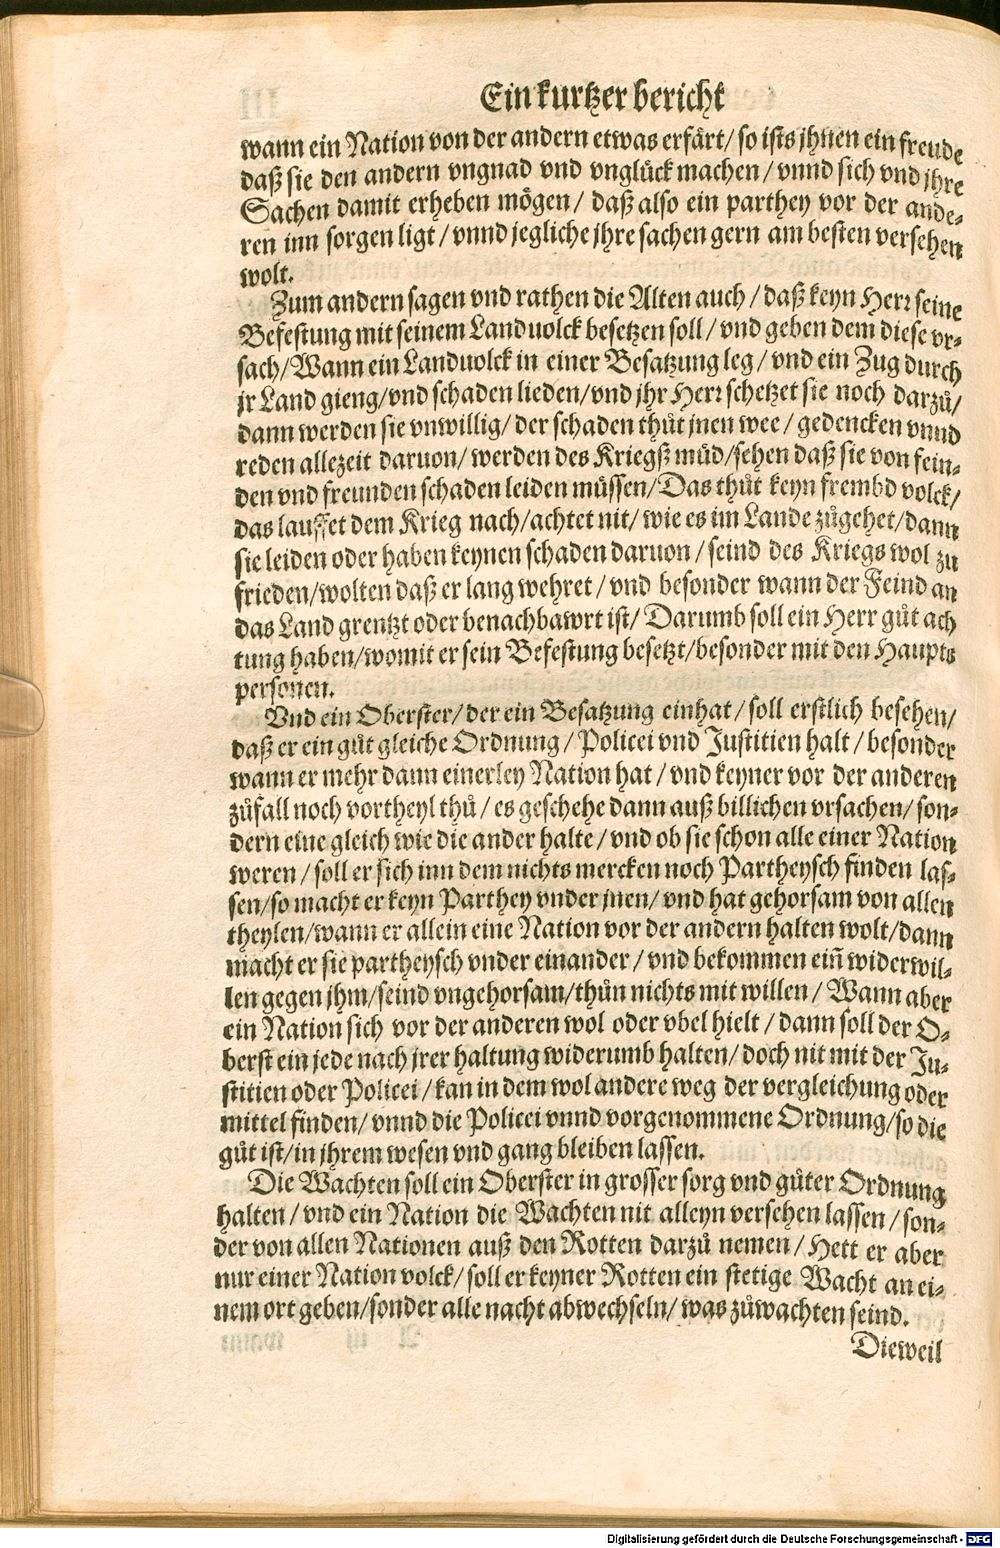 Ein kurtzer bericht
wann ein Nation von der andern etwas erfärt/ so ists jhnen ein freude
daß sie den andern vngnad vnd vnglück machen/ vnnd sich vnd jhre
Sachen damit erheben mögen/ daß also ein parthey vor der ande-
ren inn sorgen ligt/ vnnd jegliche jhre sachen gern am besten versehen
wolt.
Zum andern sagen vnd rathen die Alten auch/ daß keyn Herr seine
Befestung mit seinem Landuolck besetzen soll/ vnd geben dem diese vr-
sach/ Wann ein Landuolck in einer Besatzung leg/ vnd ein Zug durch
jr Land gieng/ vnd schaden lieden/ vnd jhr Herr schetzet sie noch darzů/
dann werden sie vnwillig/ der schaden thůt jnen wee/ gedencken vnnd
reden allezeit daruon/ werden des Kriegß můd/ sehen daß sie von fein-
den vnd freunden schaden leiden müssen/ Das thůt keyn frembd volck/
das lauffet dem Krieg nach/ achtet nit/ wie es im Lande zůgehet/ dann
sie leiden oder haben keynen schaden daruon/ seind des Kriegs wol zu
frieden/ wolten daß er lang wehret/ vnd besonder wann der Feind an
das Land grentzt oder benachbawrt ist/ Darumb soll ein Herr gůt ach
tung haben/ womit er sein Befestung besetzt/ besonder mit den Haupts
personen.
Vnd ein Oberster/ der ein Besatzung einhat/ soll erstlich besehen/
daß er ein gůt gleiche Ordnung/ Policei vnd Justitien halt/ besonder
wann er mehr dann einerley Nation hat/ vnd keyner vor der anderen
zůfall noch vortheyl thů/ es geschehe dann auß billichen vrsachen/ son-
dern eine gleich wie die ander halte/ vnd ob sie schon alle einer Nation
weren/ soll er sich inn dem nichts mercken noch Partheysch finden las-
sen/ so macht er keyn Parthey vnder jnen/ vnd hat gehorsam von allen
theylen/ wann er allein eine Nation vor der andern halten wolt/ dann
macht er sie partheysch vnder einander/ vnd bekommen ein̄ widerwil-
len gegen jhm/ seind vngehorsam/ thůn nichts mit willen/ Wann aber
ein Nation sich vor der anderen wol oder vbel hielt/ dann soll der O-
berst ein jede nach jrer haltung widerumb halten/ doch nit mit der Ju-
stitien oder Policei/ kan in dem wol andere weg der vergleichung oder
mittel finden/ vnnd die Policei vnnd vorgenommene Ordnung/ so die
gůt ist/ in jhrem wesen vnd gang bleiben lassen.
Die Wachten soll ein Oberster in grosser sorg vnd gůter Ordnung
halten/ vnd ein Nation die Wachten nit alleyn versehen lassen/ son-
der von allen Nationen auß den Rotten darzů nemen/ Hett er aber
nur einer Nation volck/ soll er keyner Rotten ein stetige Wacht an ei-
nem ort geben/ sonder alle nacht abwechseln/ was zůwachten seind.
Dieweil
Digitalisierung gefördert durch die Deutsche Forschungsgemeinschaft - DFG